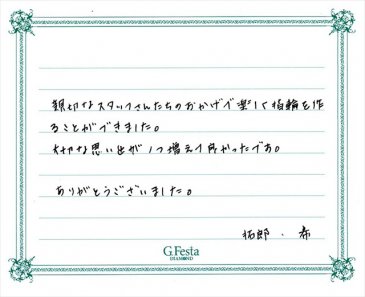 親切なスタッフさんたちのおかげで楽しく指輪を作
ることができました。
大切な思い出が1つ増えて良かったです。
ありがとうございました。
拓郎・希
G.Festa
DIAMOND